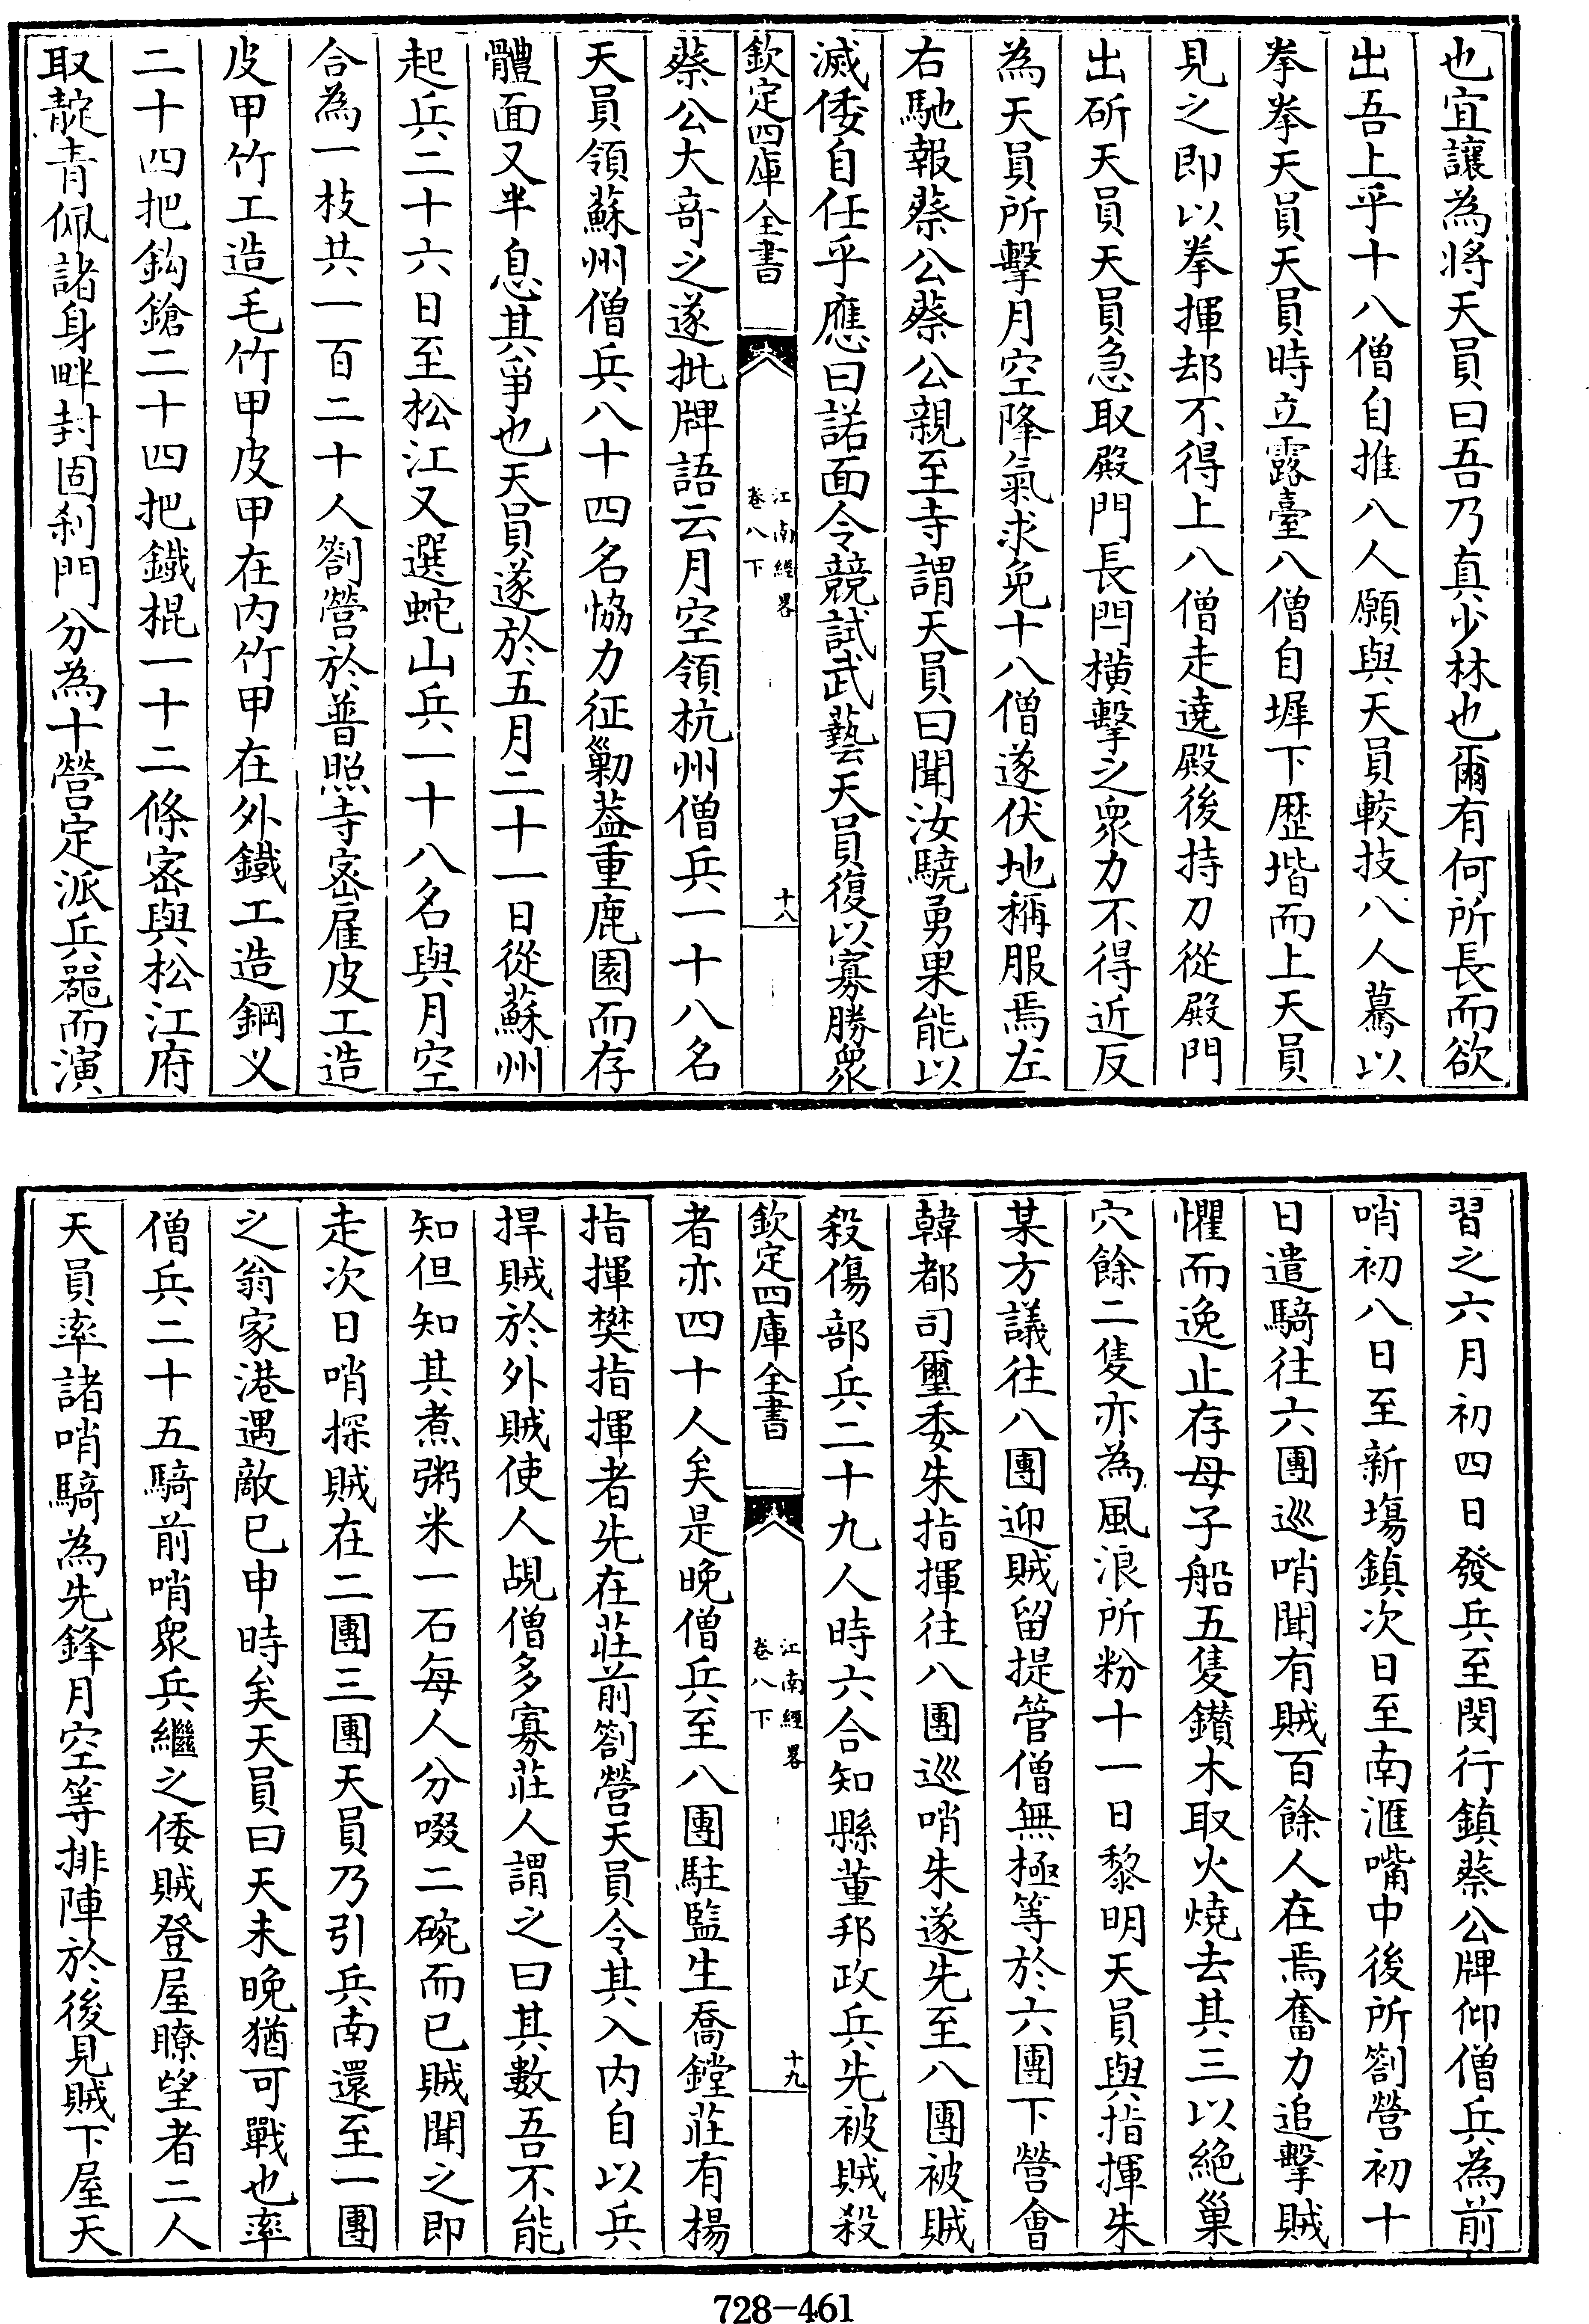 也宜讓為將天員曰吾乃真少林也爾有何所長而欲
出吾上乎十八僧自推八人願與天員較技八人驀以
拳拳天員天員時立露臺八僧自墀下歴堦而上天員
見之即以拳揮却不得上八僧走遶殿後持刀從殿門
出斫天員天員急取殿門長閂橫擊之衆力不得近反
為天員所擊月空降氣求免十八僧遂伏地稱服焉左
右馳報蔡公蔡公親至寺謂天員曰聞汝驍勇果能以
滅倭自任乎應曰諾面令競試武藝天員復以寡勝衆
欽定四庫全書
江南經畧
卷八下
十八
蔡公大奇之遂批牌語云月空領杭州僧兵一十八名
天員領蘇州僧兵八十四名恊力征勦葢重鹿園而存
體面又半息其爭也天員遂於五月二十一日從蘇州
起兵二十六日至松江又選蛇山兵一十八名與月空
合為一枝共一百二十人劄營於普照寺宻雇皮工造
皮甲竹工造毛竹甲皮甲在内竹甲在外鐵工造鋼义
二十四把鈎鎗二十四把鐵棍一十二條宻與松江府
取靛青佩諸身畔封固刹門分為十營定派兵器而演
習之六月初四日發兵至閔行鎮蔡公牌仰僧兵為前
哨初八日至新塲鎮次日至南滙嘴中後所劄營初十
日遣騎往六團巡哨聞有賊百餘人在焉奮力追擊賊
懼而逸止存母子船五隻鑚木取火燒去其三以絶巢
穴餘二隻亦為風浪所粉十一日黎明天員與指揮朱
某方議往八團迎賊留提管僧無極等於六團下營會
韓都司璽委朱指揮往八團巡哨朱遂先至八團被賊
殺傷部兵二十九人時六合知縣董邦政兵先被賊殺
欽定四庫全書
江南經畧
卷八下
十九
者亦四十人矣是晚僧兵至八團駐監生喬鏜莊有楊
指揮樊指揮者先在莊前劄營天員令其入内自以兵
捍賊於外賊使人覘僧多寡莊人謂之曰其數吾不能
知但知其煮粥米一石每人分啜二碗而已賊聞之即
走次日哨探賊在二團三團天員乃引兵南還至一團
之翁家港遇敵已申時矣天員曰天未晚猶可戰也率
僧兵二十五騎前哨衆兵繼之倭賊登屋瞭望者二人
天員率諸哨騎為先鋒月空等排陣於後見賊下屋天
728-461